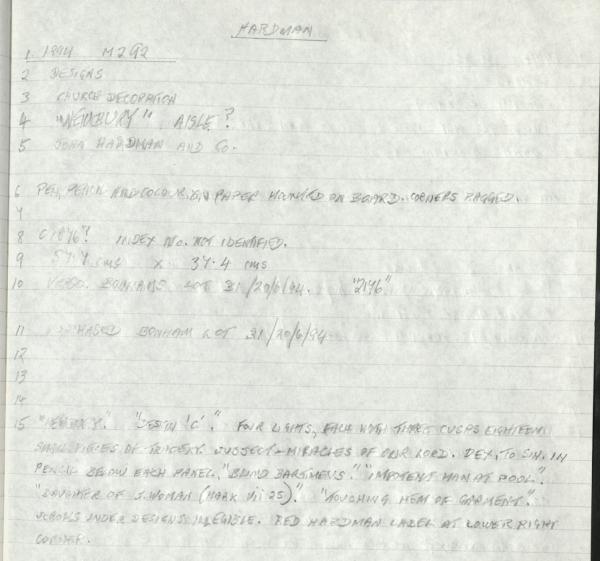 HARDMAN
1. 1994 M292
2 DESIGNS
3 CHURCH DECORATION
4 "NEWBURY" AISLE?
5 JOHN HARDMAN AND CO.
6 PEN, PENCIL AND COLOUR ON PAPER MOUNTED ON BOARD. CORNERS RAGGED.
7
8 C 1876? INDEX NO. NOT IDENTIFIED.
9 cms x 37.4 cms
10 VERSO. BONHAMS LOT 31/20/6/94. "2176"
11 PURCHASED BONHAM LOT 31/20/6/94
12
13
14
15 "NEWBURY". "DESIGN 'C'." FOUR LIGHTS, EACH WITH THREE CUSPS EIGHTEEN
SMALL PIECES OF TRACERY. SUBJECT - MIRACLES OF OUR LORD. DEX. TO SIN. IN
PENCIL BELOW EACH PANEL, "BLIND BARTIMENS". "IMPOTENT MAN AT POOL".
"DAUGHTER OF S. WOMAN (MARK VII 25)". "TOUCHING HEM OF GARMENT".
SCROLLS UNDER DESIGNS ILLEGIBLE. RED HARDMAN LABEL AT LOWER RIGHT
CORNER.